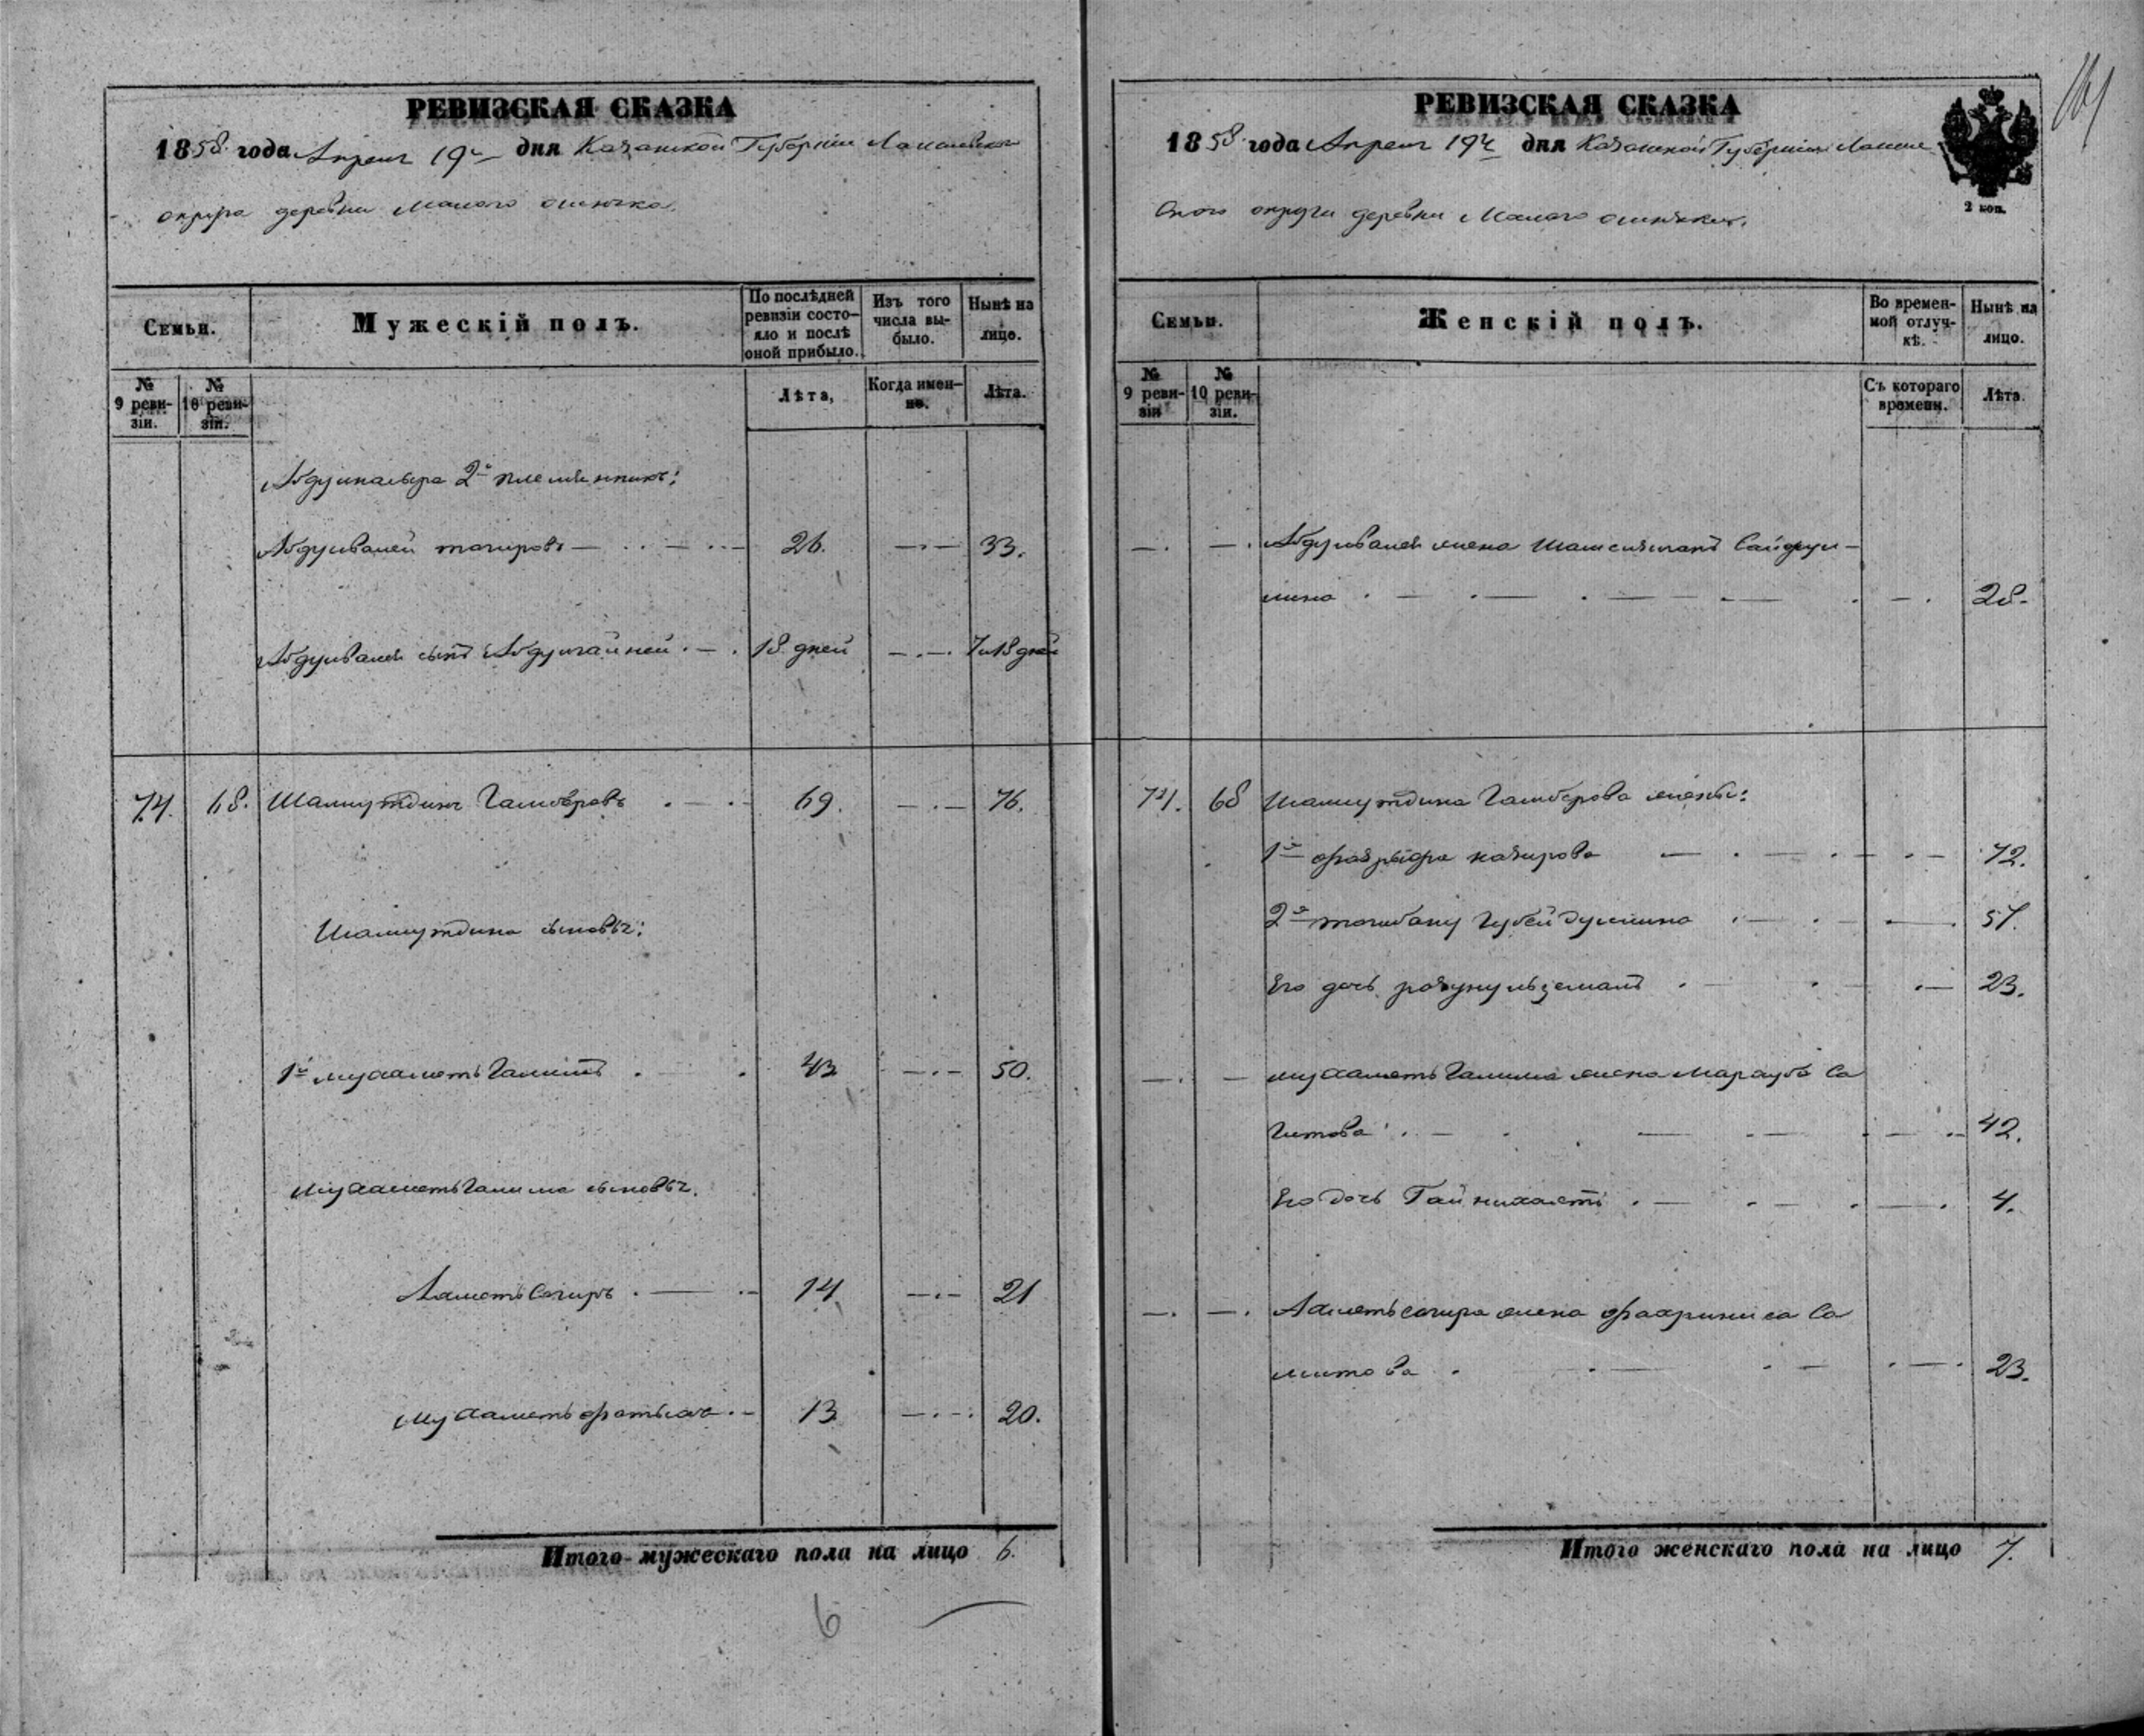 РЕВИЗСКАЯ СКАЗКА
1858 года Апреля 19 дня Казанской Губернiи Лаишевскаго
округа деревни Малаго
Семьи.
Мужескiй полъ.
По послѣдней ревизiи состояло и послѣ оной прибыло.
Изъ того числа выбыло.
Нынѣ на лицо.
№ 9 ревизiи.
№ 10 ревизiи.
Лѣта,
Когда именно.
Лѣта.
2й племянникъ:
Абдулвалей тагировъ 26. 33.
Абдулвалея сынъ Абдулгайней 18 дней 7 и 18 дней
74. 68. Шамшутдинъ 69. 76.
Шамшутдина сыновья:
1й мухаметь Галимъ 43 50.
мухаметьгалима сыновья.
Ахметь Сагиръ 14 21
мухаметь фатыхъ 13 20.
Итого мужескаго пола на лицо 6.
6
РЕВИЗСКАЯ СКАЗКА
1858 года Апреля 19 дня Казанской Губернiи Лаише
скаго округи деревни Малаго
2 коп.
Семьи.
Женскiй полъ.
Во временной отлучкѣ.
Нынѣ на лицо.
№ 9 ревизiи
№ 10 ревизiи.
Съ котораго времени.
Лѣта.
Абдулвалея жена Сайфул-
лина 28.
74. 68 Шамшутдина жены:
1я 72.
2я Губейдуллина 57.
Его дочь 23.
мухаметь Галима жена Са
гитова 42.
Его дочь 4.
Ахметьсагира жена Са
митова 23.
Итого женскаго пола на лицо 7.